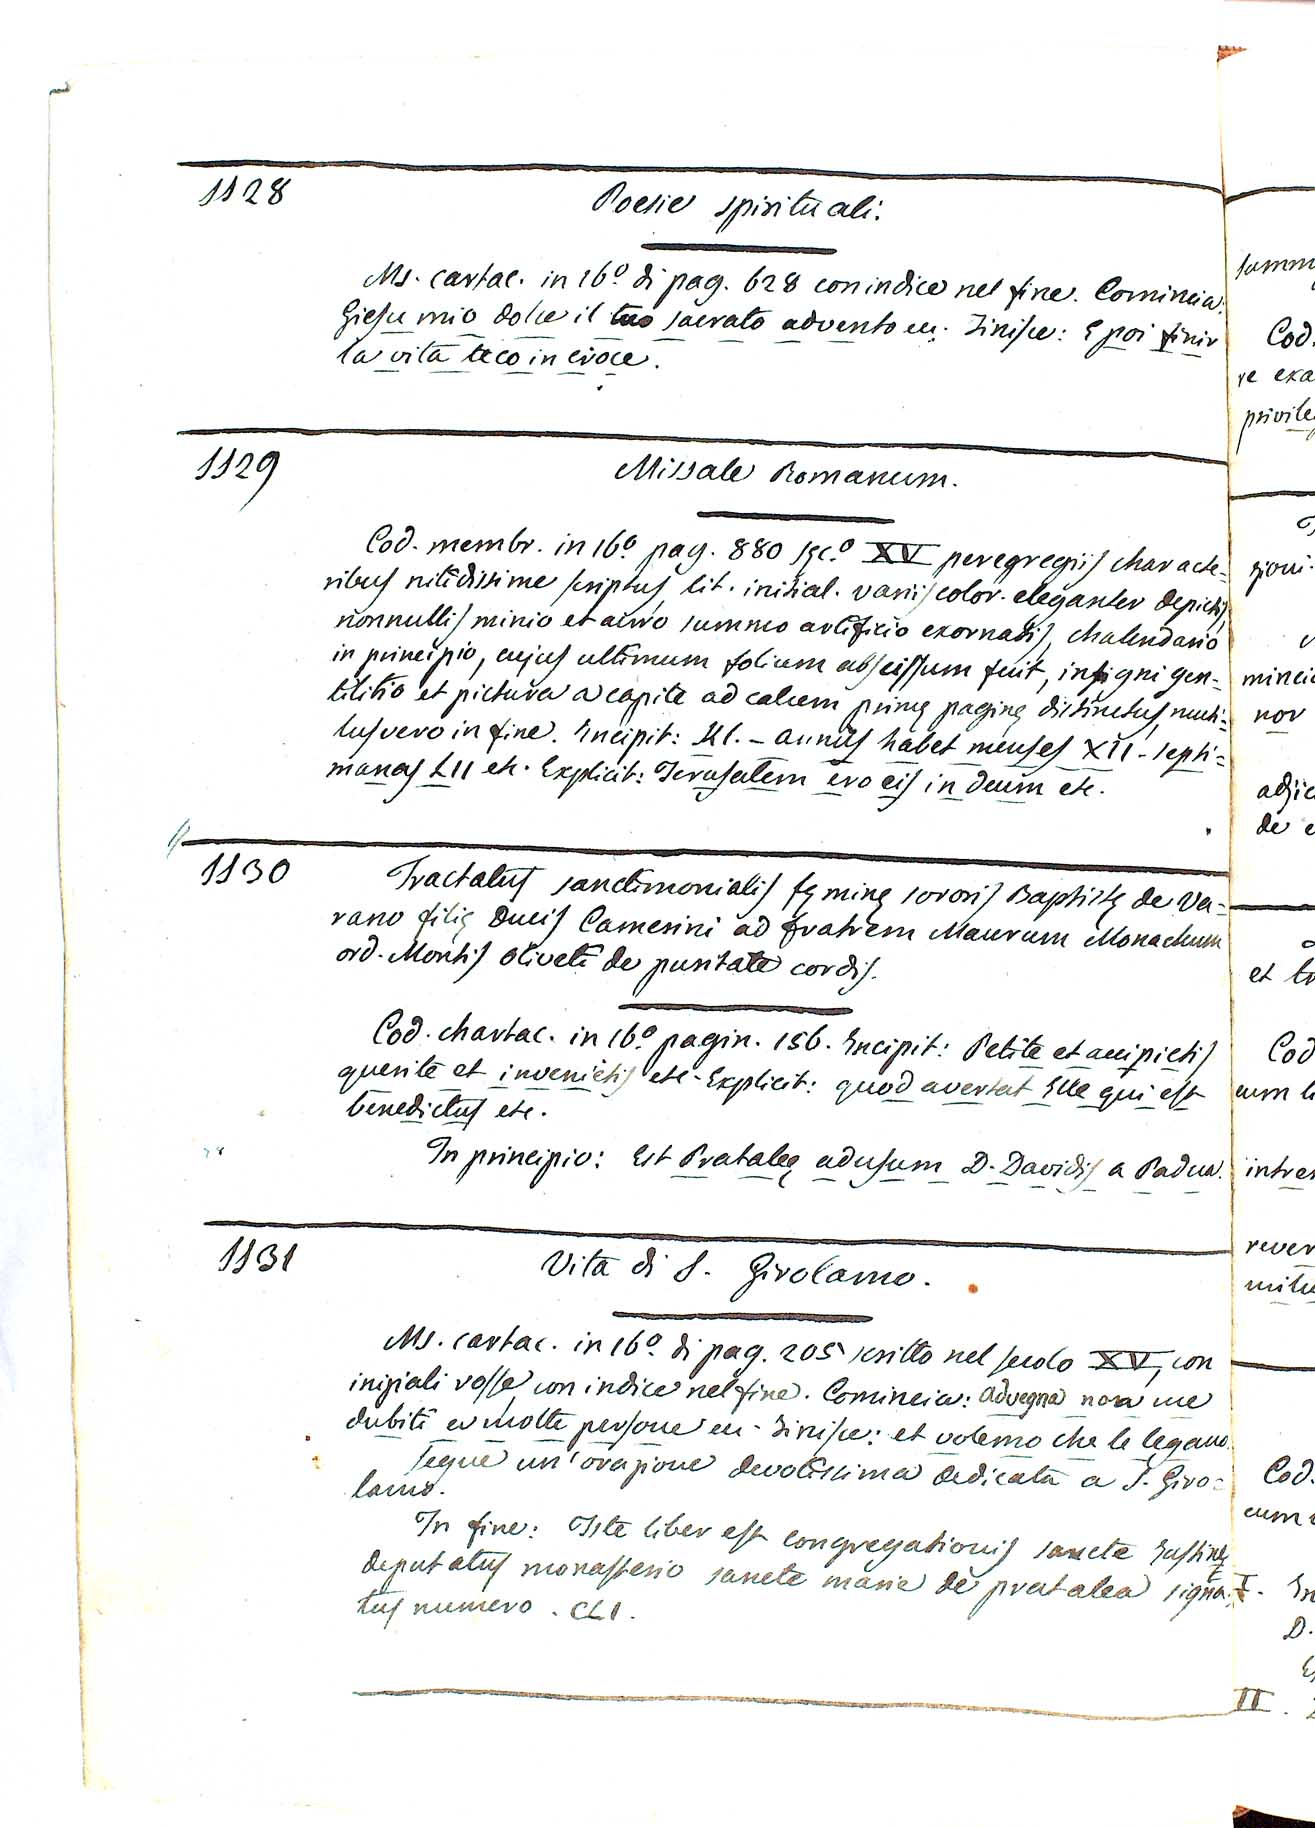 1128
Poesie spirituali.
Ms. cartac. in 16º di pag. 628 con indice nel fine. Comincia:
Giesu mio dolce il tuo sacrato advento ec. Finisce: E poi finir
la vita teco in croce.
1129
Missale Romanum.
Cod. membr. in 16º pag. 880 sęc.º XV peregregiis characte=
ribus nitidissime scriptus, lit. initial. variis color. eleganter depictis,
nonnullis minio et auro summo artificio exornatis, chalendario
in principio, cujus ultimum folium abscissum fuit, insigni gen=
tilitio et pictura a capite ad calcem primę paginę distinctus, muti=
lus vero in fine. Incipit: Kl. – annus habet menses XII – septi=
manas LII etc. Explicit: Jerusalem ero eis in deum etc.
1130
Tractatus sanctimonialis fęminę sororis Baptistę de Va=
rano filię Ducis Camerini ad fratrem Maurum Monachum
ord. Montis Oliveti de puritate cordis.
Cod. chartac. in 16º pagin. 156. Incipit: Petite et accipietis
querite et invenietis etc. Explicit: quod avertat Ille qui est
benedictus etc.
In principio: Est Prataleę ad usum D. Davidis a Padua.
1131
Vita di S. Girolamo.
Ms. cartac. in 16º di pag. 205 scritto nel secolo XV, con
iniziali rosse con indice nel fine. Comincia: Advegna non me
dubiti e molte persone ec. Finisce: et volemo che le legano.
Segue un'orazione devotissima dedicata a S. Giro=
lamo.
In fine: Iste liber est congregationis sancte Justinę
deputatus monasterio sancte marie de pratalea signa=
tus numero. CLI.
Cod.
re exa
zioni.
nor
de e
Cod
Cod.
I.
D.
II.